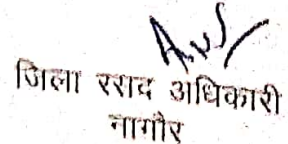 जिला रसद अधिकारी
नागौर